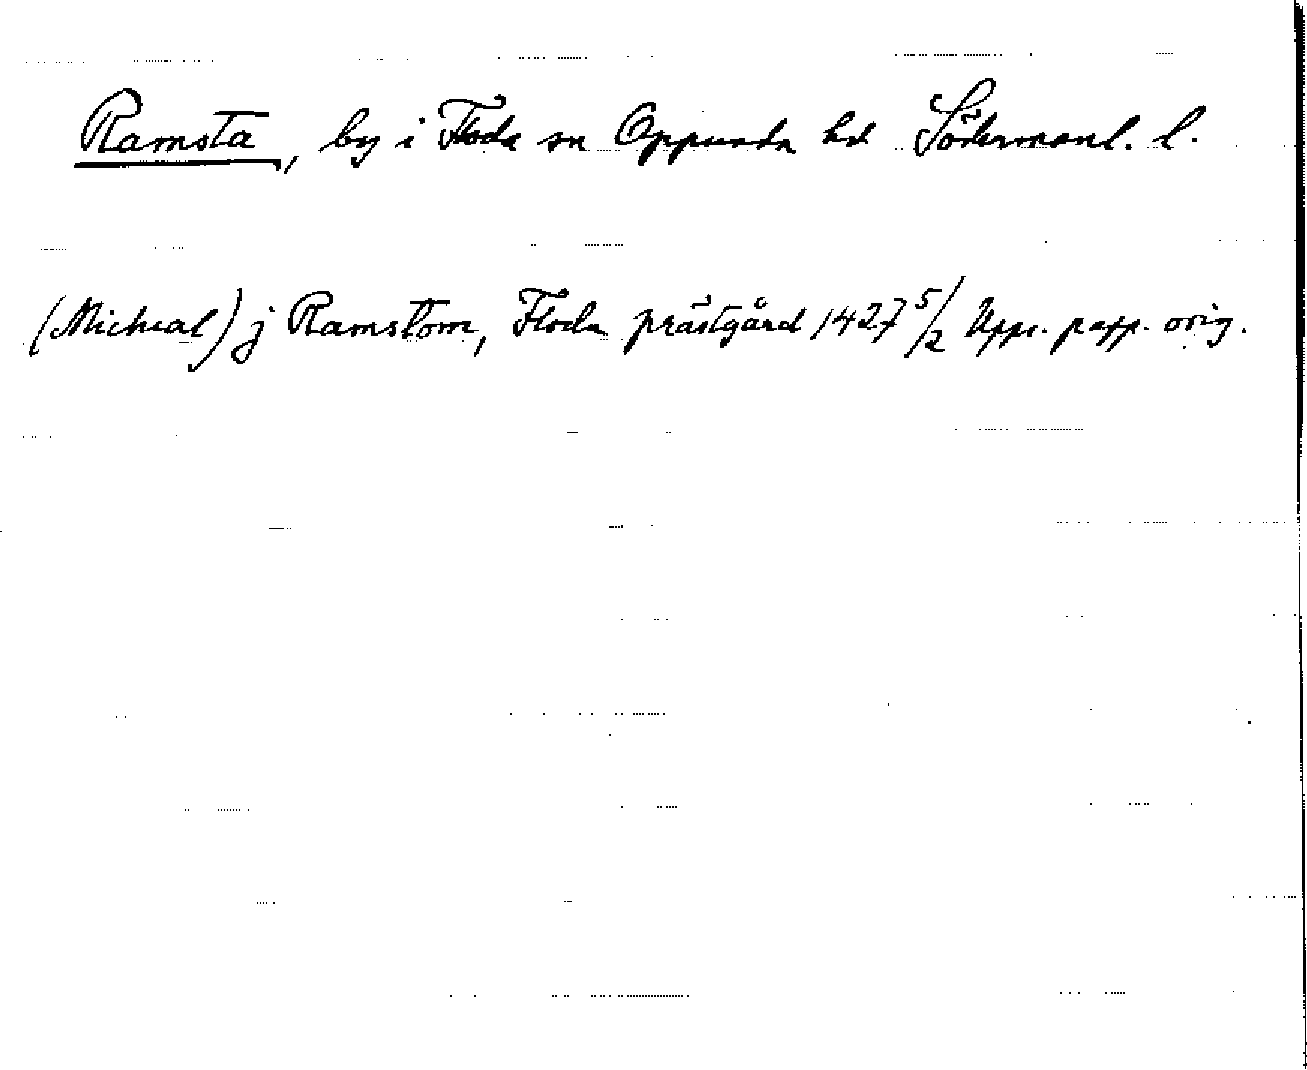 Ramsta, by i Floda sn Oppunda hd Södermanl. l.
(Micheal) j Ramstom, Floda prästgård 1427 5/2 Upps. papp. orig.